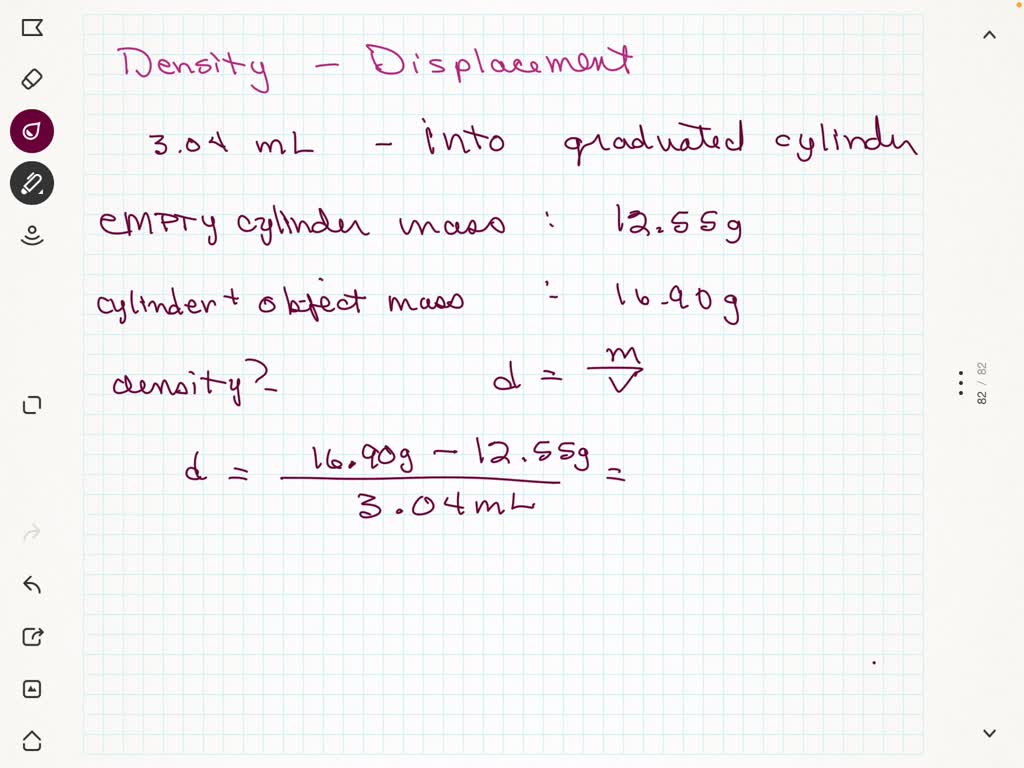 Density - Displacement
3.04 mL - into graduated cylinder
empty cylinder mass : 12.55g
cylinder + object mass : 16.90g
density? d = m/V
d = 16.90g - 12.55g / 3.04mL =
82 / 82